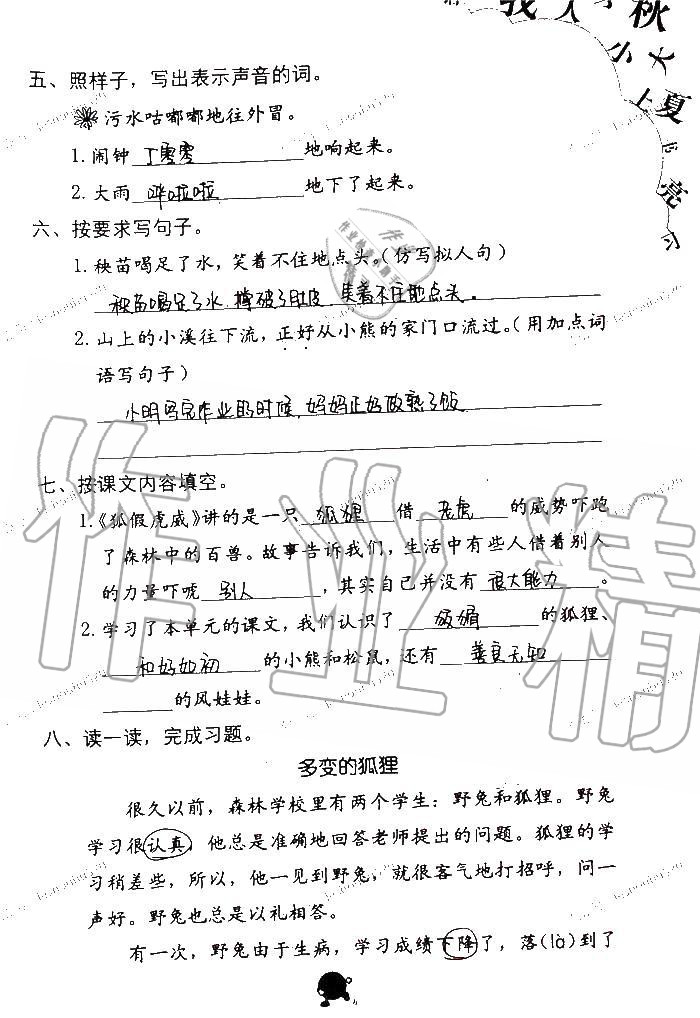 我 人 秋
小 大
上 夏
亮
五、照样子，写出表示声音的词。
污水咕嘟嘟地往外冒。
1.闹钟 丁零零 地响起来。
2.大雨 哗啦啦 地下了起来。
六、按要求写句子。
1.秧苗喝足了水，笑着不住地点头。（仿写拟人句）
秧苗喝足了水,撑破了肚皮 笑着不住地点头。
2.山上的小溪往下流，正好从小熊的家门口流过。（用加点词
语写句子）
小明写完作业的时候,妈妈正好做熟了饭
七、按课文内容填空。
1.《狐假虎威》讲的是一只 狐狸 借 老虎 的威势吓跑
了森林中的百兽。故事告诉我们，生活中有些人借着别人
的力量吓唬 别人 ，其实自己并没有 很大能力 。
2.学习了本单元的课文，我们认识了 的狐狸、
和好如初 的小熊和松鼠，还有 善良无知
的风娃娃。
八、读一读，完成习题。
多变的狐狸
很久以前，森林学校里有两个学生：野兔和狐狸。野兔
学习很认真，他总是准确地回答老师提出的问题。狐狸的学
习稍差些，所以，他一见到野兔，就很客气地打招呼，问一
声好。野兔也总是以礼相答。
有一次，野兔由于生病，学习成绩下降了，落(là)到了
作业精